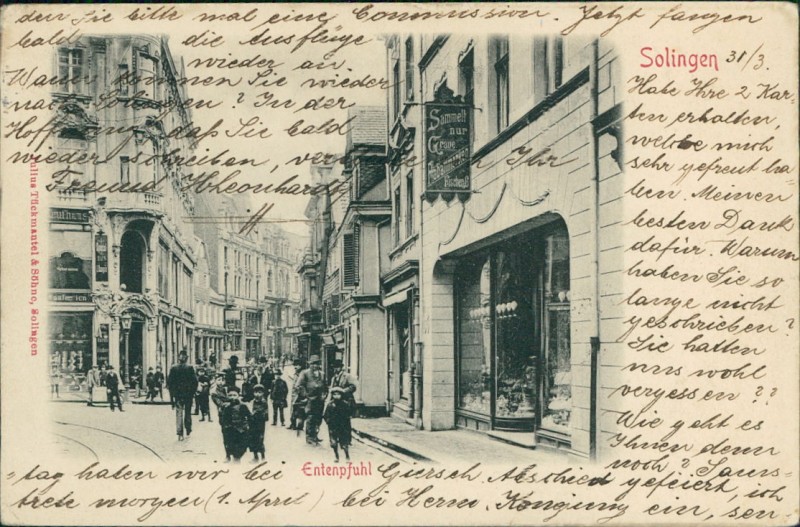 Solingen 31/3.
Habe Ihre 2 Kar-
ten erhalten,
welche mich
sehr gefreut ha-
ben. Meinen
besten Dank
dafür. Warum
haben Sie so
lange nicht
geschrieben?
Sie hatten
uns wohl
vergessen??
Wie geht es
Ihnen denn
noch? Sams-
-tag haben wir bei Giersch Abschied gefeiert, ich
trete morgen (1. April) bei Herm. ein, sen-
den Sie bitte mal eine Commission. Jetzt fangen
bald die Ausflüge
wieder an.
Wann kommen Sie wieder
nach Solingen? In der
Hoffnung, daß Sie bald
wieder schreiben, Ihr
Freund
Entenpfuhl
Julius Tückmantel & Söhne, Solingen
Sammelt
nur
Grone